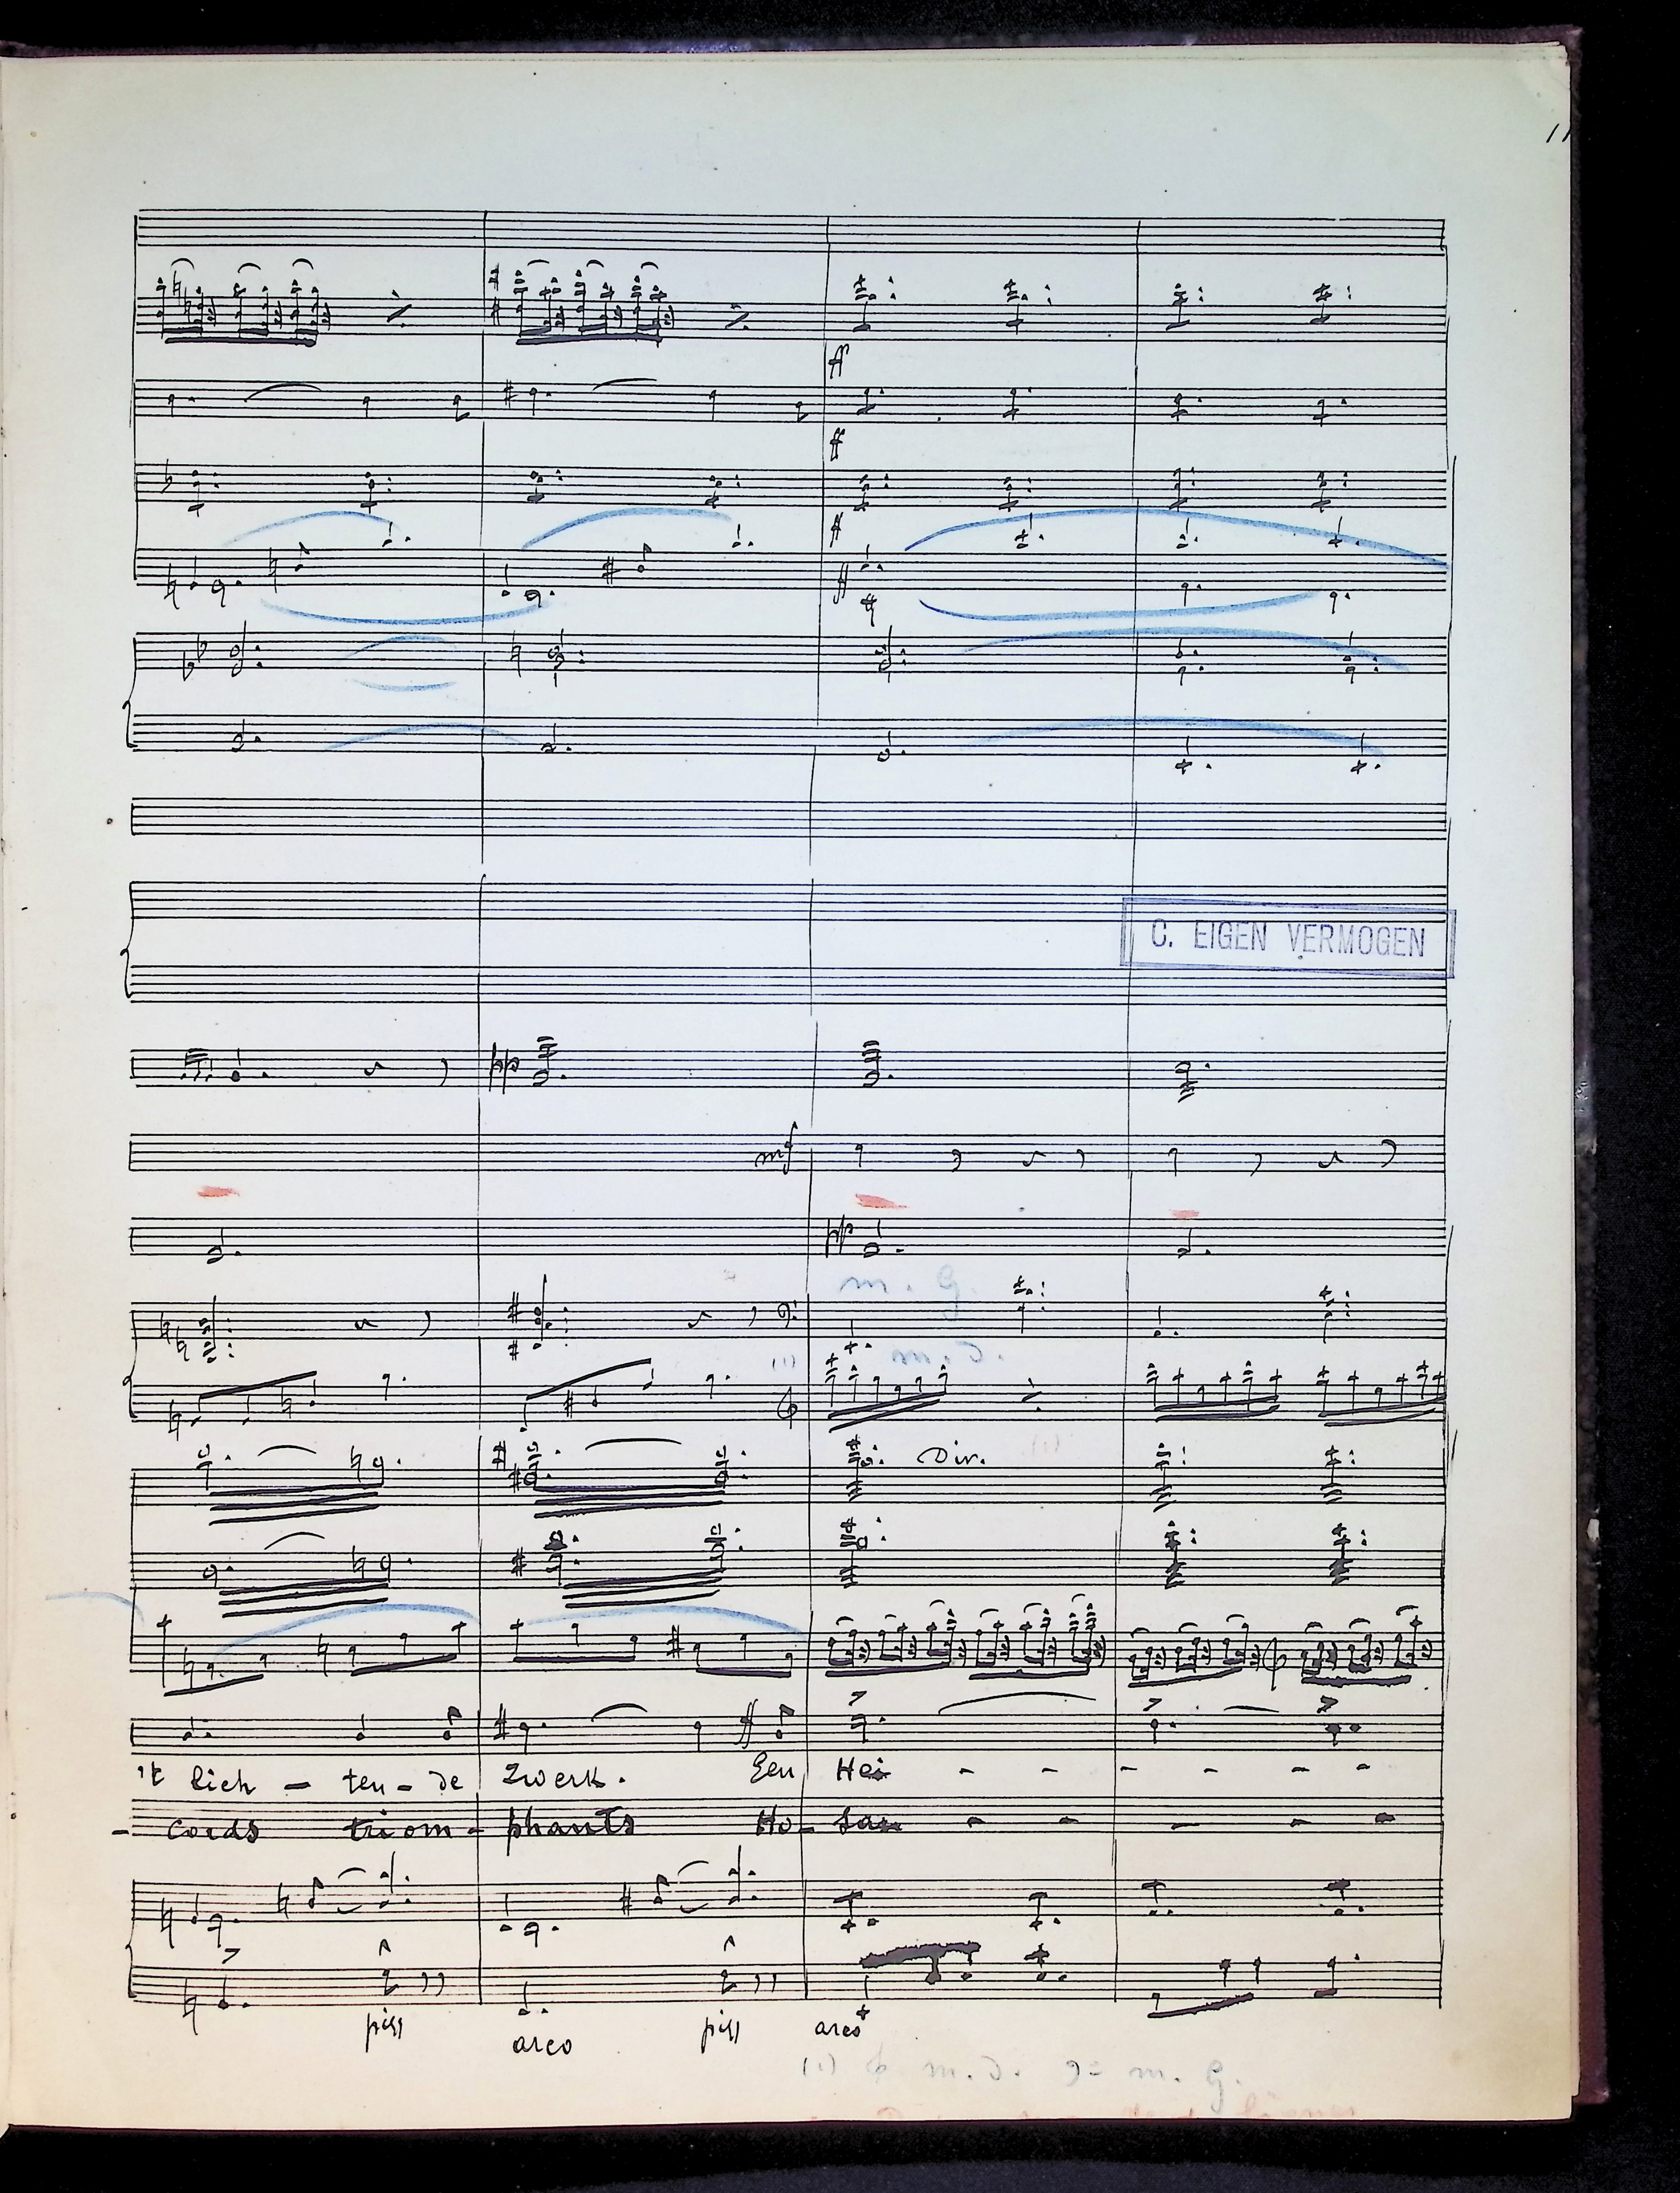 11
ff
ff
ff
ff
C. EIGEN VERMOGEN
pp
mf
pp
m. G.
m. d.
(1)
Div.
ff
't lich - ten - de zwerk. Een Hei - - - - - -
- cords triom - phants Ho - san - - - - -
pizz pizz
arco arco
(1) m. d. = m. G.